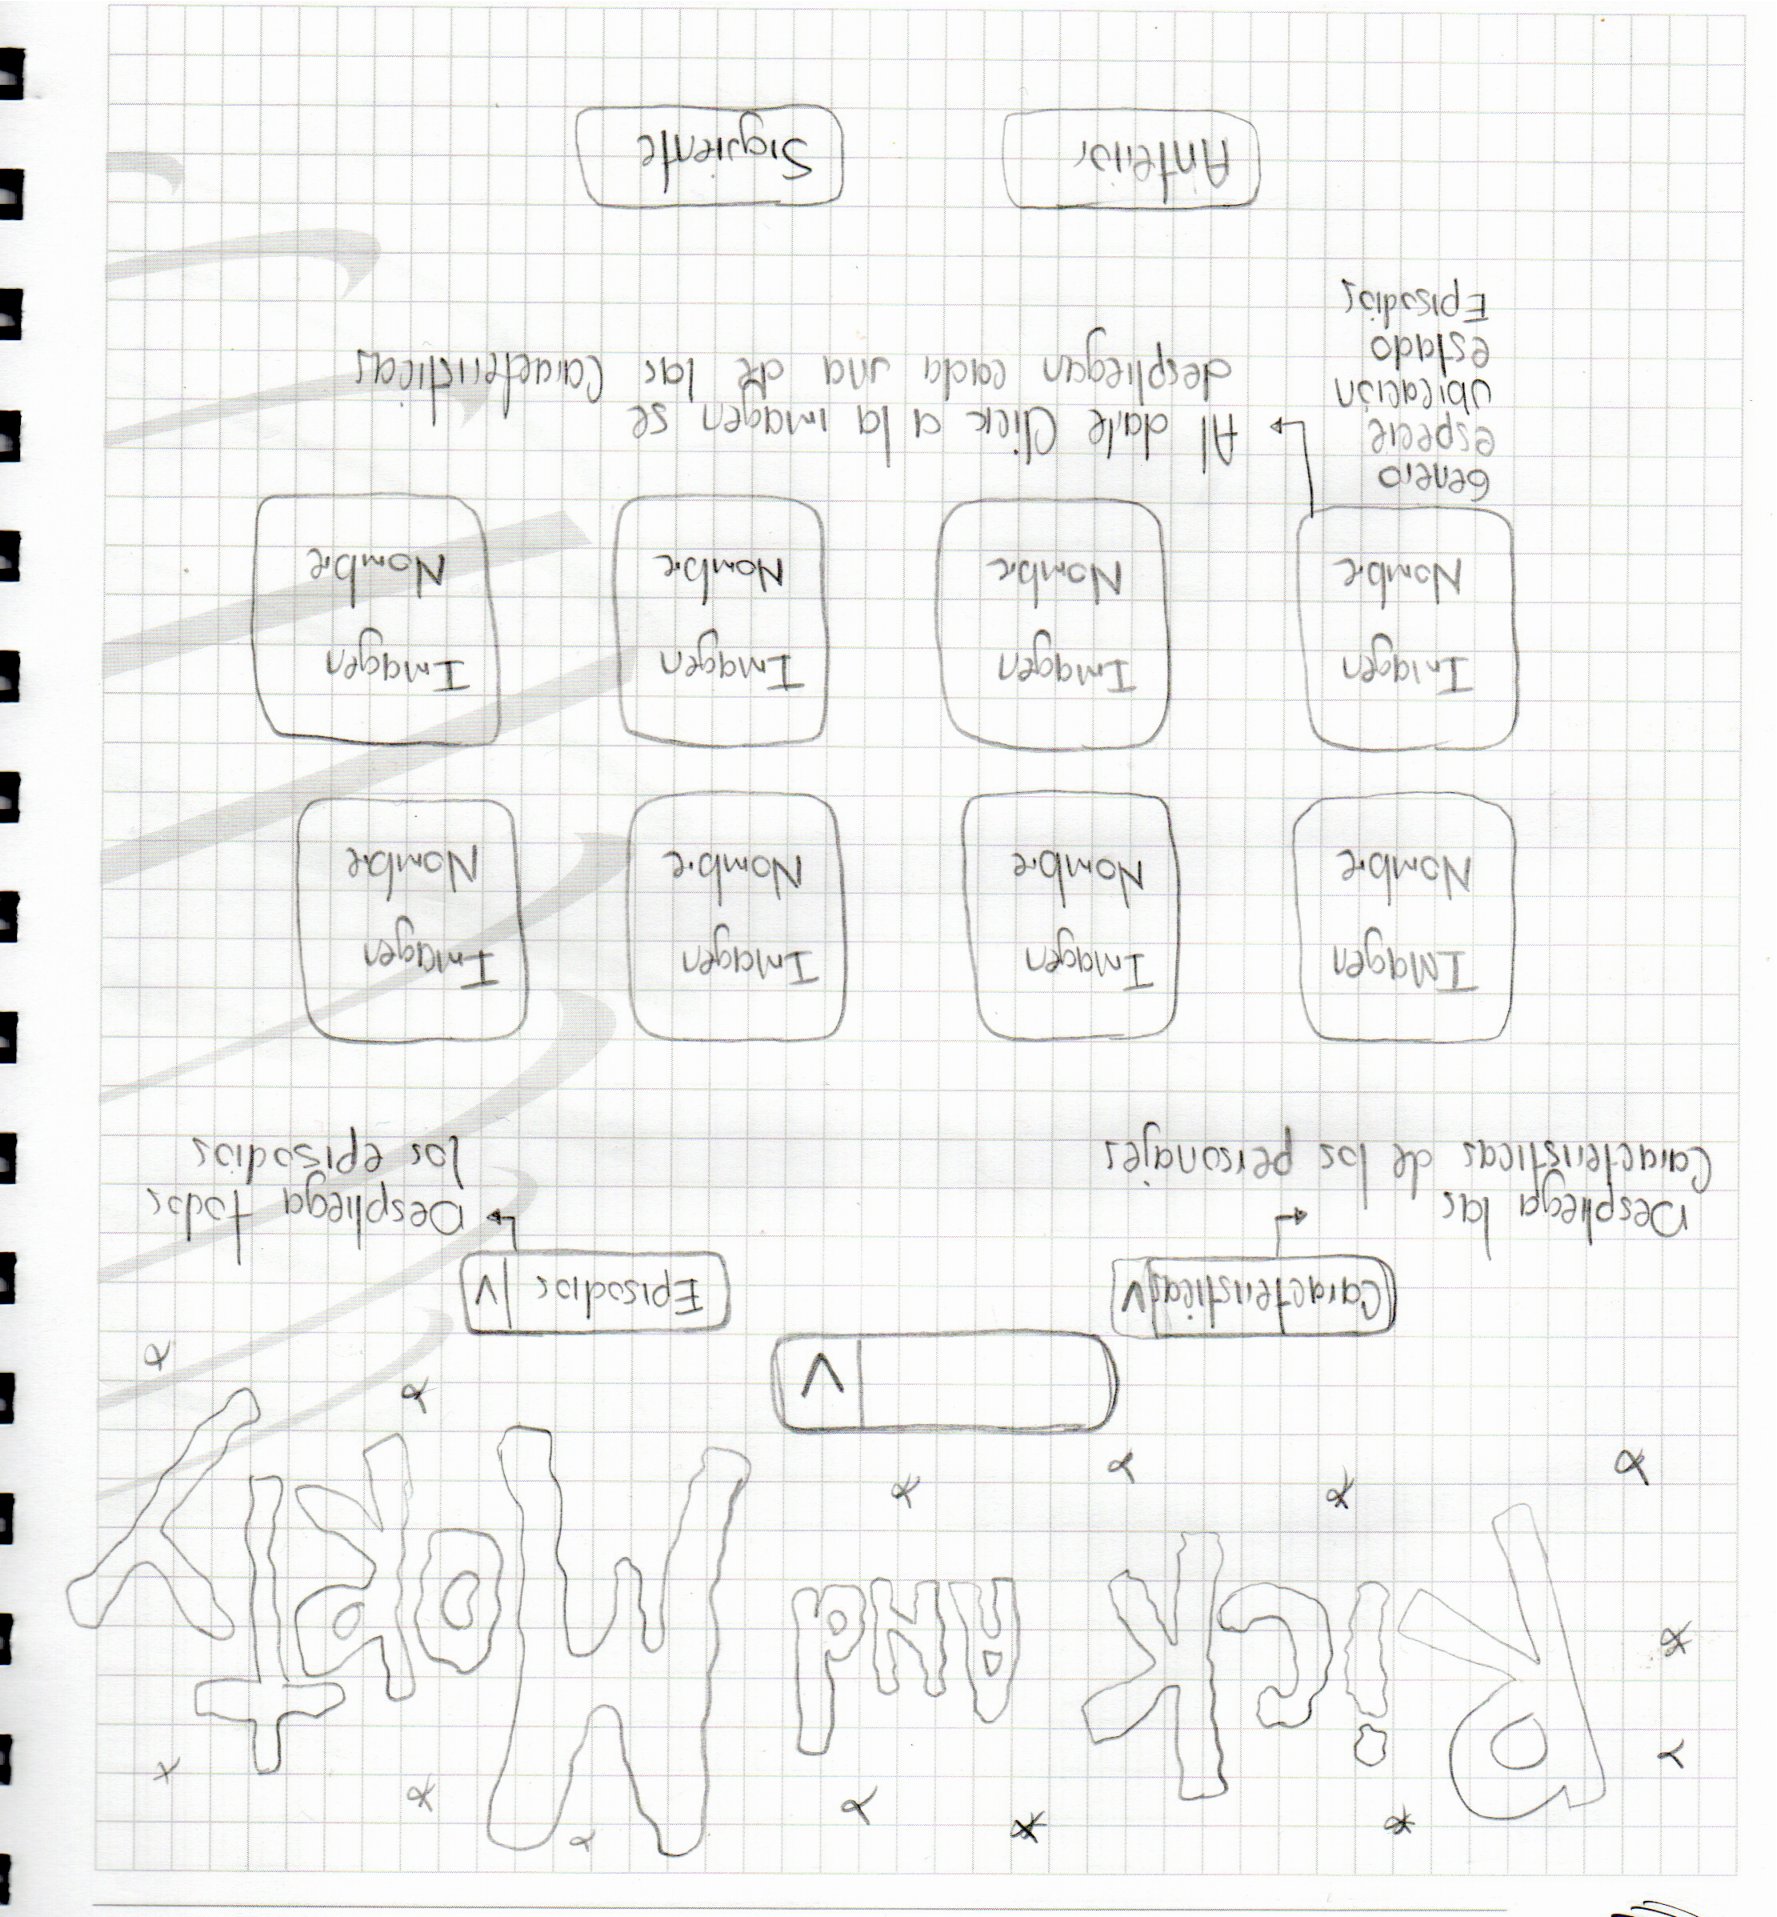 Rick And Morty
Caracteristicas V
Episodios V
Despliega las
Caracteristicas de los personajes
Despliega todos
los episodios
Imagen Imagen Imagen Imagen
Nombre Nombre Nombre Nombre
Imagen Imagen Imagen Imagen
Nombre Nombre Nombre Nombre
Genero
especie
ubicación
estado
Episodios
Al darle Click a la imagen se
despliegan cada una de las Caracteristicas
Anterior
Siguiente